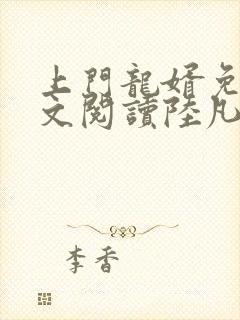 上門龍婿免
文閱讀陸凡
李香